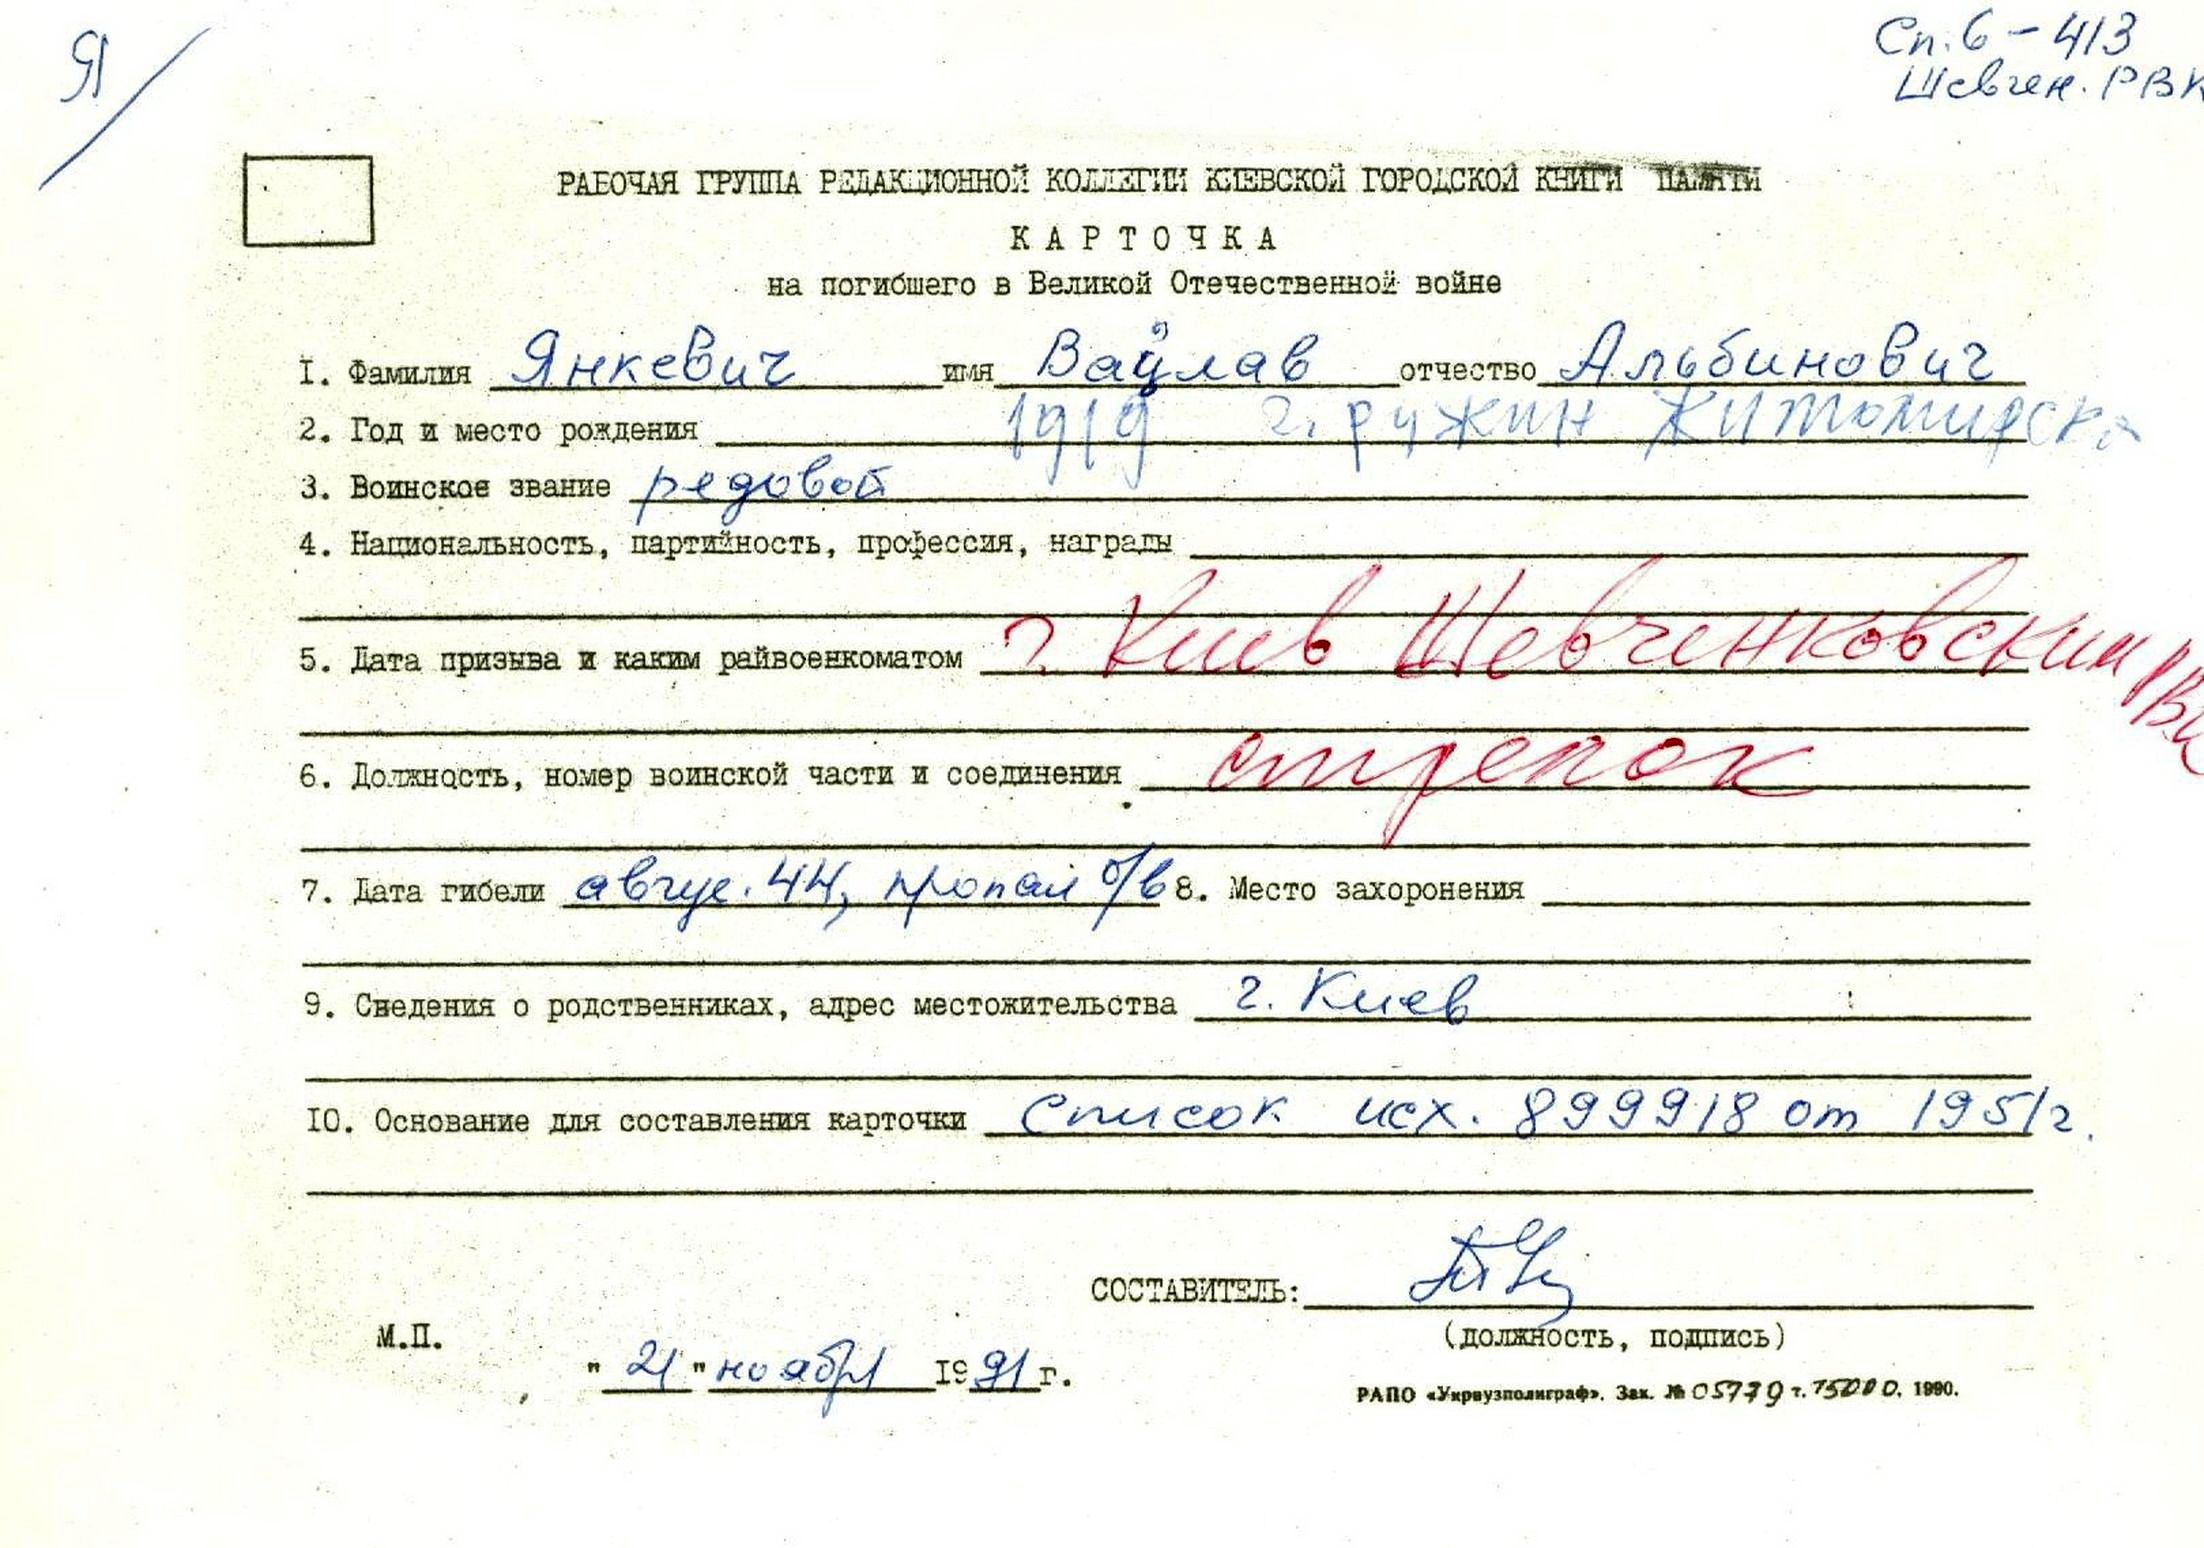 Я
Сп. 6 - 413
Шевчен. РВК
РАБОЧАЯ ГРУППА РЕДАКЦИОННОЙ КОЛЛЕГИИ КИЕВСКОЙ ГОРОДСКОЙ КНИГИ ПАМЯТИ
КАРТОЧКА
на погибшего в Великой Отечественной войне
1. Фамилия Янкевич имя Вацлав отчество Альбинович
2. Год и место рождения 1919 г. ружин Житомирск
3. Воинское звание редовой
4. Национальность, партийность, профессия, награды
5. Дата призыва и каким райвоенкоматом г. Киев Шевченковским РВК
6. Должность, номер воинской части и соединения стрелок
7. Дата гибели авгус. 44, пропал б/в 8. Место захоронения
9. Сведения о родственниках, адрес местожительства г. Киев
10. Основание для составления карточки Список исх. 899918 от 1951г.
СОСТАВИТЕЛЬ:
(должность, подпись)
М.П.
" 21 " ноября 1991 г.
РАПО «Укрвузполиграф». Зак. № 05779 т. 75000. 1990.